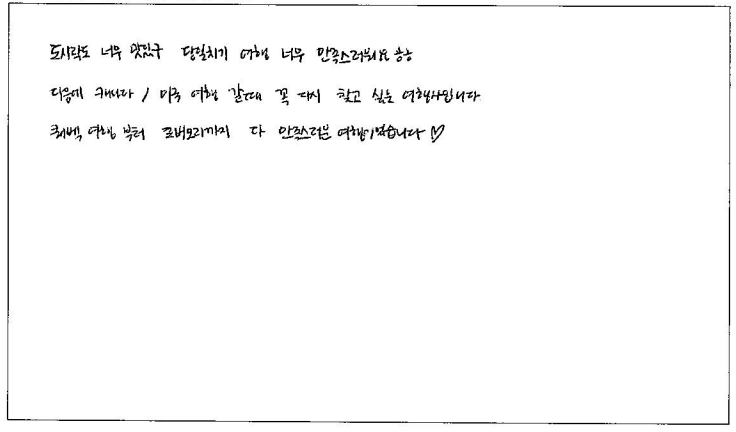 도시락도 너무 맛있구 당일치기 여행 너무 만족스러워요 ㅎㅎ
다음에 캐나다 / 미국 여행 갈때 꼭 다시 찾고 싶은 여행사입니다
퀘벡 여행 부터 토버모리까지 다 만족스러운 여행이었습니다 ♡